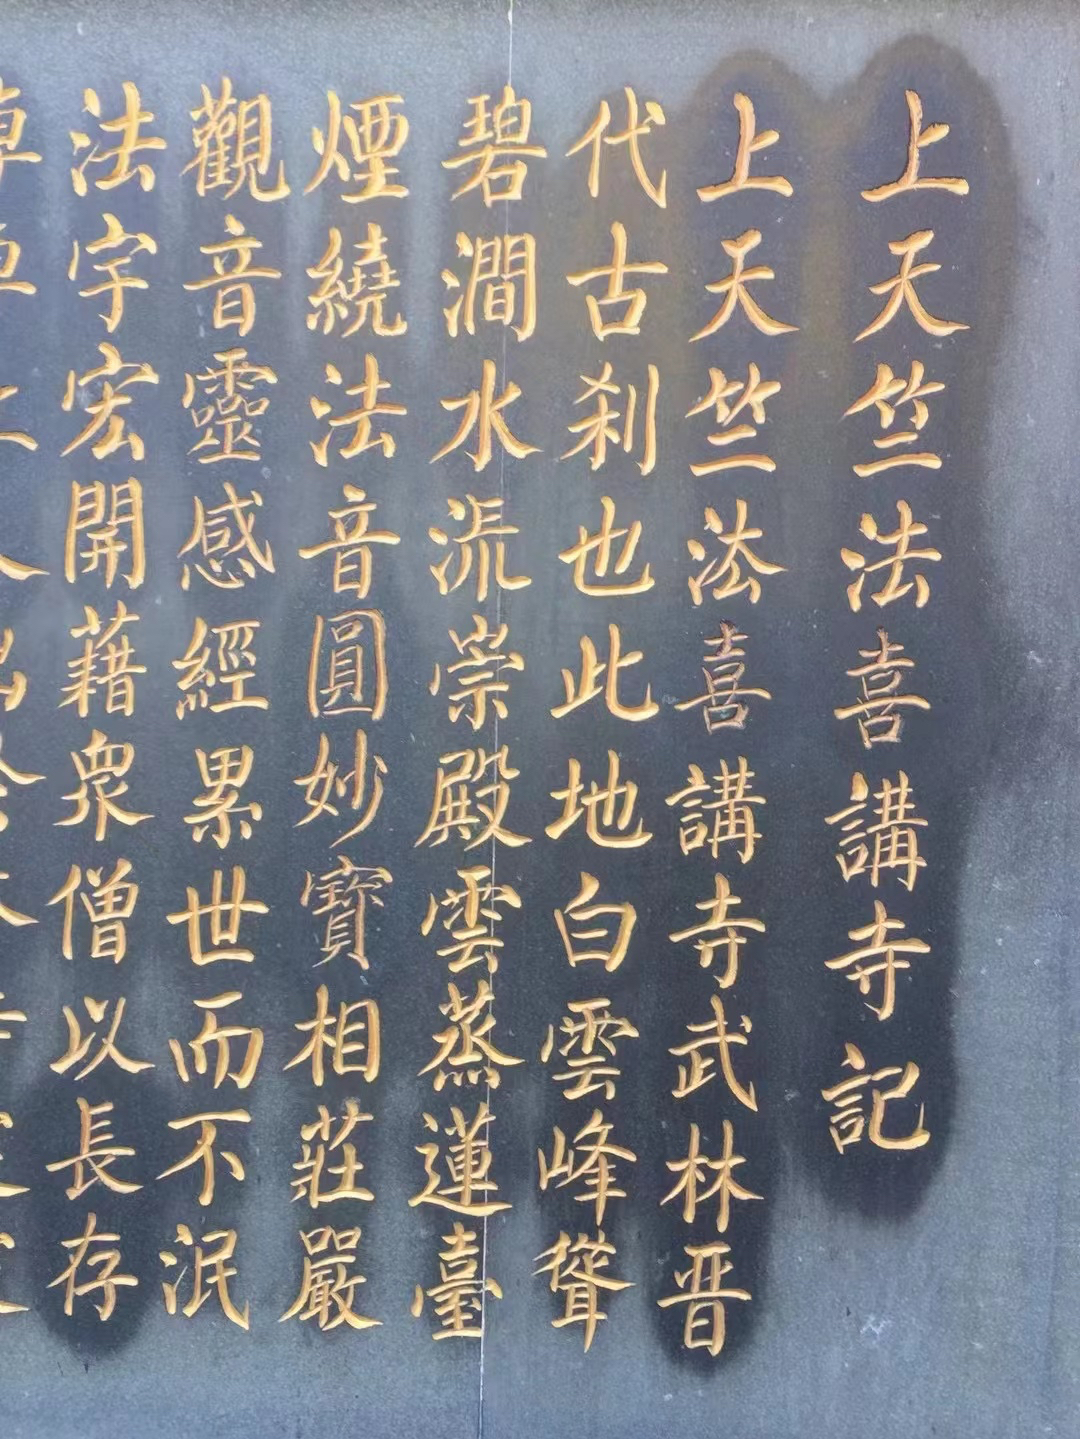 上天竺法喜講寺記
上天竺法喜講寺武林晋
代古刹也此地白雲峰聳
碧澗水流崇殿雲蒸蓮臺
煙繞法音圓妙寶相莊嚴
觀音靈感經累世而不泯
法宇宏開藉衆僧以長存